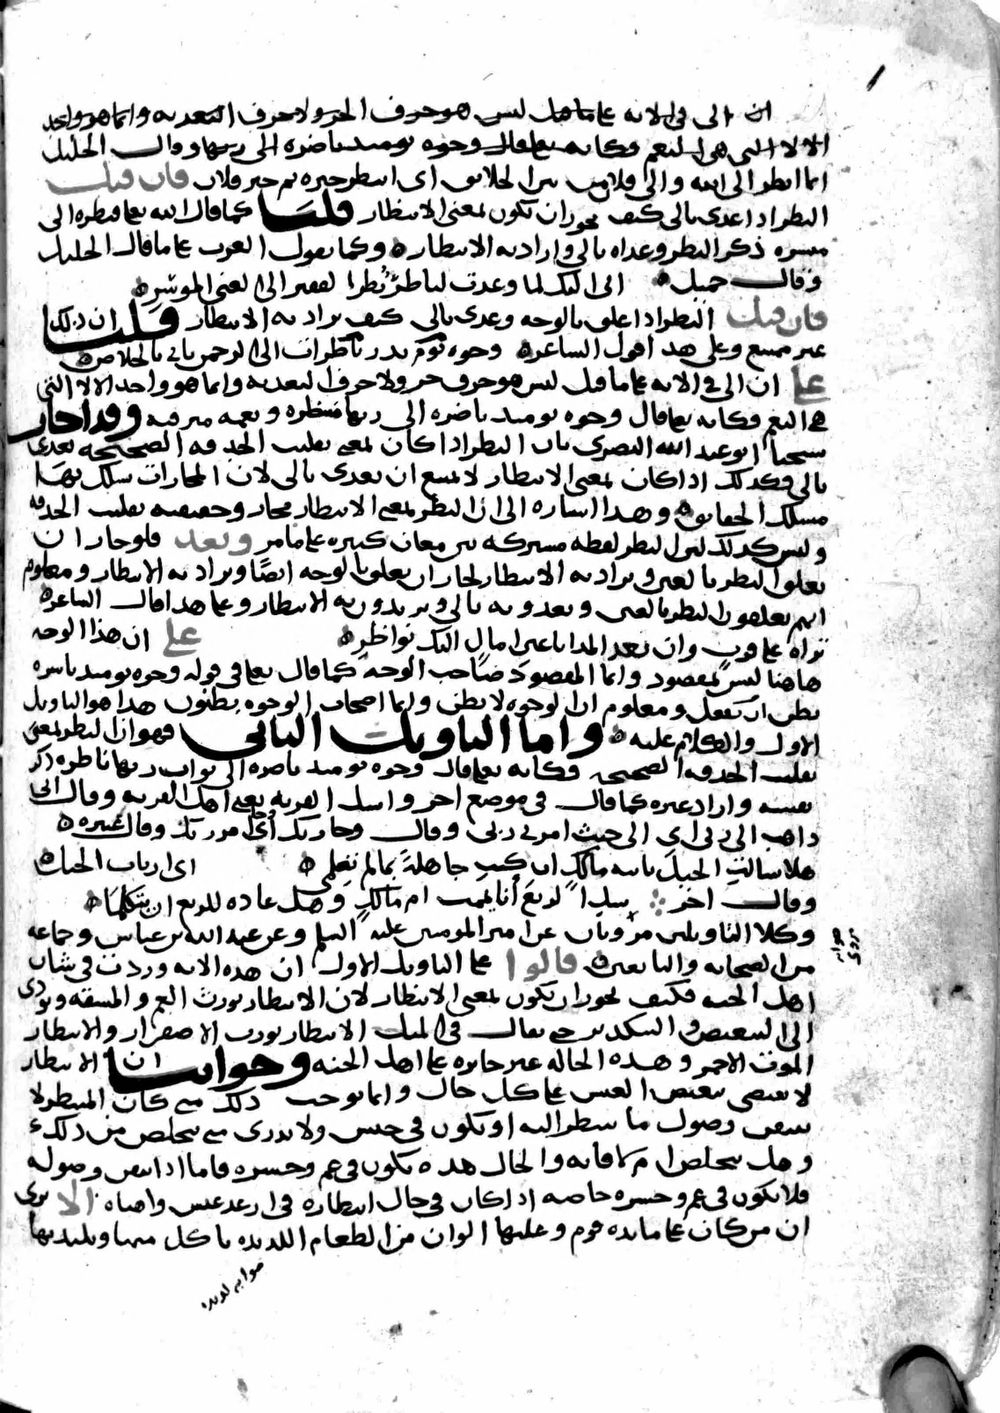 ان الى في الايه على ما قيل ليس هو حرف الجر ولا حرف التعديه وانما هو واحد
الالا التي هي النعم وكانه تعالى قال وجوه يومئذ ناضره الى ربها وقال الخليل
انما انظر الى الله والى فلان من بين الخلائق اي انتظر خيره ثم خير فلان فان قيل
النظر اذا عدي بالى كيف يجوز ان تكون بمعنى الانتظار قلنا كما قال الله تعالى فنظره الى
ميسره ذكر النظر وعداه بالى واراد به الانتظار وكما يقول العرب على ما قال الخليل
وقال جميل اني اليك لما وعدت لناظر نظرا لفقير الى الغني الموسر
فان قيل النظر اذا علق بالوجه وعدي بالى كيف يراد به الانتظار قلنا ان ذلك
غير ممتنع وعلى هذا قول الشاعر وجوه يوم بدر ناظرات الى الرحمن ياتي بالخلاص
على ان الى في الايه على ما قيل ليس هو حرف جر ولا حرف التعديه وانما هو واحد الالا التي
هي النعم وكانه تعالى قال وجوه يومئذ ناضره الى ربها منتظره ونعمه مترقبه وقد اجاز
شيخنا ابو عبد الله البصري بان النظر اذا كان بمعنى تقليب الحدقه الصحيحه تعدى
بالى فكذلك اذا كان بمعنى الانتظار لا يمتنع ان يعدى بالى لان المجازات يسلك بها
مسلك الحقايق وهذا اشاره الى ان النظر بمعنى الانتظار مجاز وحقيقته تقليب الحدقه
وليس كذلك لان النظر لفظه مشتركه بين معان كثيره على ما مر وبعد فلو جاز ان
يعلقوا النظر بالعين ويراد به الانتظار لجاز ان يعلق بالوجه ايضا ويراد به الانتظار ومعلوم
انهم يعلقون النظر بالعين ويعدونه بالى ويريدون به الانتظار وعلى هذا قال الشاعر
تراه على قرب وان بعد المدا باعين امال اليك نواظر على ان هذا الوجه
هاهنا ليس بمقصود وانما المقصود صاحب الوجه كما قال تعالى في قوله وجوه يومئذ باسره
تظن ان يفعل ومعلوم ان الوجوه لا يظن وانما اصحاب الوجوه يظنون هذا هو التاويل
الاول والكلام عليه واما التاويل الثاني فهو ان النظر بمعنى
تقليب الحدقه الصحيحه فكانه تعالى قال وجوه يومئذ ناضره الى ثواب ربها ناظره ذكر
نفسه واراد غيره كما قال في موضع اخر واسل القريه يعني اهل القريه وقال اني
ذاهب الى ربي اي الى حيث امرني ربي وقال وجا ربك اي امر ربك وقال عنتره
هلا سالت الخيل يا ابنه مالك ان كنت جاهلة بما لم تعلمي اي ارباب الخيل
وقال اخر سلا الربع انا يممت ام مالك وهل عاده للربع ان يتكلما
وكلا التاويلين مرويان عن امير المومنين عليه السلم وعن عبد الله بن عباس وجماعه
من الصحابه والتابعين قالوا على التاويل الاول ان هذه الايه وردت في شان
اهل الجنه فكيف يجوز ان تكون بمعنى الانتظار لان الانتظار يورث الغم والمشقه ويودي
الى التنغيص والتكدير حتى يقال في المثل الانتظار يورث الاصفرار والانتظار
الموت الاحمر وهذه الحاله غير جايزه على اهل الجنه وجوابنا ان الانتظار
لا يقتضي تنغيص العيش على كل حال وانما يوجب ذلك متى كان المنتظر لا
يتيقن وصول ما ينتظر اليه او يكون في حبس ولا يدري متى يتخلص من ذلك
وهل يتخلص ام لا فانه والحال هذه يكون في غم وحسره فاما اذا تيقن وصوله
فلا يكون في غم وحسره خاصه اذا كان في حال انتظاره في ارغد عيش واهناه الا ترى
ان من كان على مايده قوم وعليها الوان من الطعام اللذيذه ياكل منها ويلتذ بها